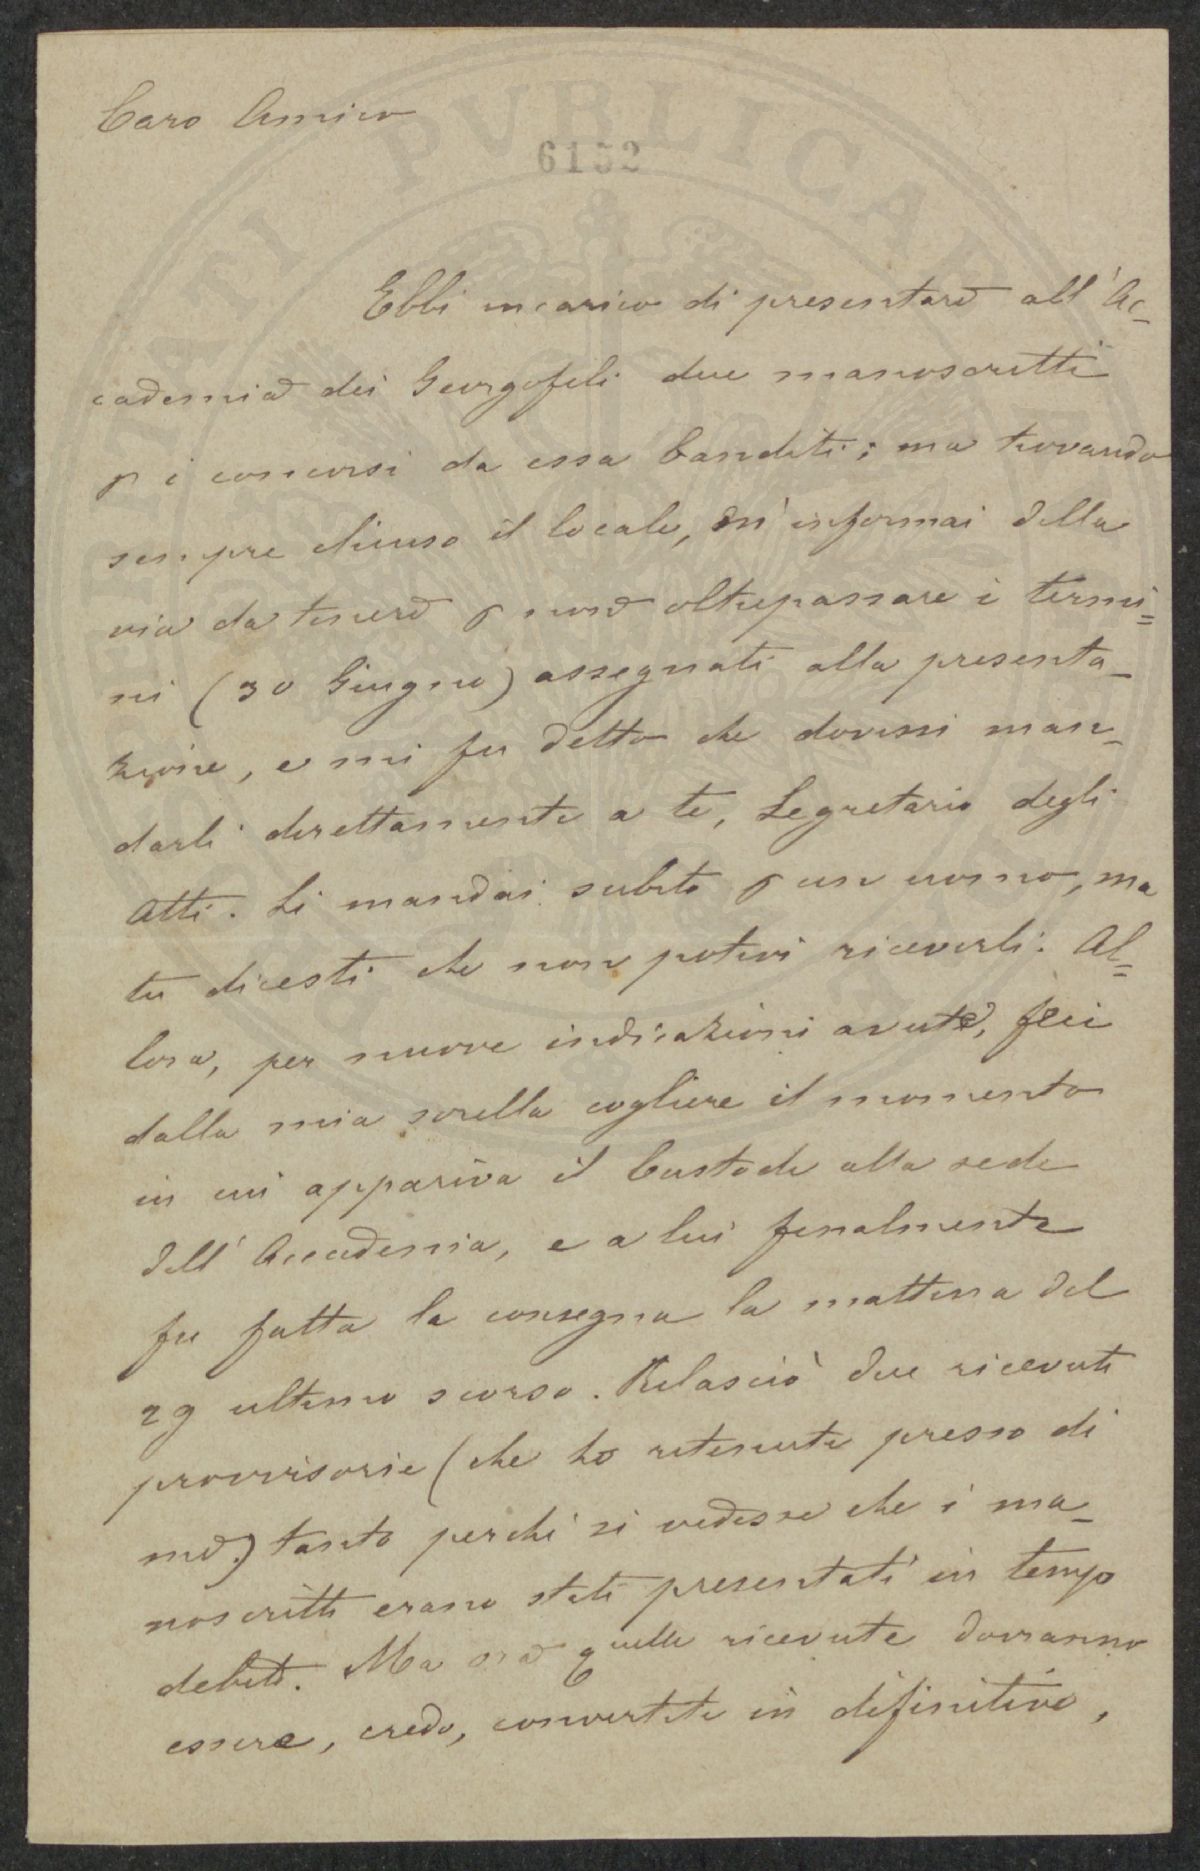 Caro Amico
6152
Ebbi incarico di presentare all'Ac-
cademia dei Georgofili due manoscritti
p i concorsi da essa banditi; ma trovando
sempre chiuso il locale, m'informai della
via da tenere p non oltrepassare i termi=
ni (30 Giugno) assegnati alla presenta-
zione, e mi fu detto che dovessi man-
darli direttamente a te, Segretario degli
Atti. Li mandai subito p un uomo, ma
tu dicesti che non potevi riceverli. Al=
lora, per nuove indicazioni avute, feci
dalla mia sorella cogliere il momento
in cui appariva il Custode alla sede
dell'Accademia, e a lui finalmente
fu fatta la consegna la mattina del
29 ultimo scorso. Rilasciò due ricevute
provvisorie (che ho ritenute presso di
me) tanto perchè si vedesse che i ma-
noscritti erano stati presentati in tempo
debito. Ma ora quelle ricevute dovranno
essere, credo, convertite in definitive,